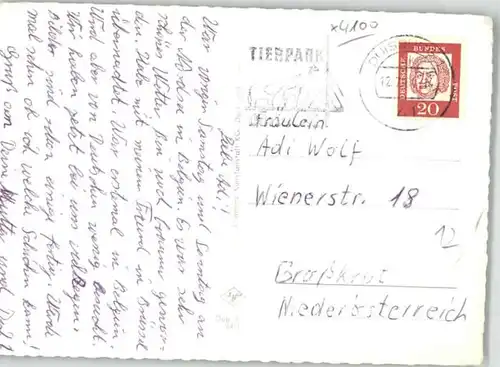 x4100
TIERPARK
DUIS
12.
DEUTSCHE BUNDES POST
20
Fräulein
Adi Wolf
Wienerstr. 18
12
Großkrut
Niederösterreich
Liebe Adi!
War vorigen Samstag und Sonntag an
der Nordsee in Belgien. Es war sehr
schönes Wetter. Bin auch braun geworden.
Habe mit meinem Freund in Brüssel
übernachtet. War erstmal in Belgien.
Wird aber von Deutschen wenig besucht.
Wir haben jetzt bei uns viel Regen.
Bilder sind schon einige fertig. Werde
mal sehen ob ich welche schicken kann!
Gruß an Deine Mutter und